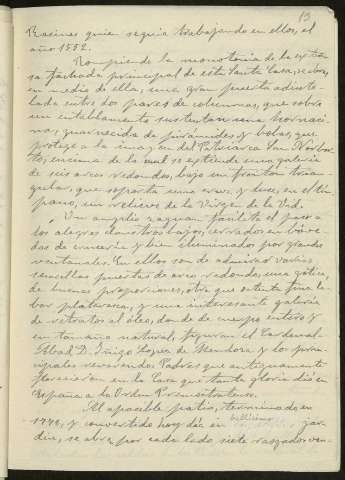 13
Rasines quien seguia trabajando en ellos, el
año 1552.
Rompiendo la monotonia de la exten-
sa fachada principal de esta Santa Casa, se abre,
en medio de ella, una gran puerta adinte-
lada entre dos pares de columnas, que sobre
un entablamento sustentan una hornaci-
na, guarnecida de pirámides y bolas, que
protege a la imagen del Patriarca San Norber-
to, encima de la cual se extiende una galeria
de seis arcos redondos, bajo un frontón trian-
gular, que soporta una cruz, y luce, en el tím-
pano, un relieve de la Virgen de la Vid.
Un amplio zaguan facilita el paso a
los alegres claustros bajos, cerrados en bóve-
das de crucería y bien iluminados por grandes
ventanales. En ellos son de admirar varias
sencillas puertas de arco redondo, una gótica,
de buenas proporciones, otra que ostenta fina la-
bor plateresca, y una interesante galeria
de retratos al óleo, donde de cuerpo entero y
en tamaño natural, figuran el Cardenal-
Abad D. Iñigo Lopez de Mendoza y los prin-
cipales reverendos Padres que antiguamente
florecieron en la Casa que tanta gloria dió en
España a la Orden Premostratense.
Al apacible patio, terminado en
1772, y convertido hoy dia en jar-
din, se abren por cada lado, siete rasgados ven-